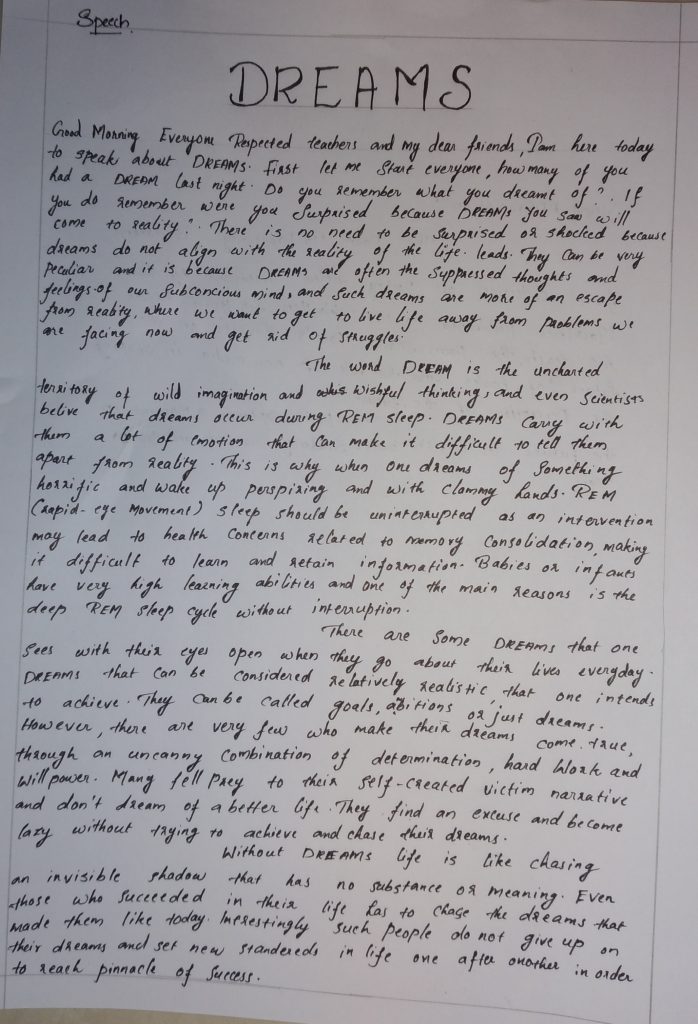 Speech.
DREAMS
Good Morning Everyone Respected teachers and my dear friends, I am here today
to speak about DREAMS. First let me start everyone, how many of you
had a DREAM last night. Do you remember what you dreamt of?. If
you do remember were you surprised because DREAMS you saw will
come to reality?. There is no need to be surprised or shocked because
dreams do not align with the reality of the life leads. They can be very
peculiar and it is because DREAMS are often the suppressed thoughts and
feelings of our subconcious mind, and such dreams are more of an escape
from reality, where we want to get to live life away from problems we
are facing now and get rid of struggles.
The word DREAM is the uncharted
territory of wild imagination and wishful thinking, and even scientists
belive that dreams occur during REM sleep. DREAMS carry with
them a lot of emotion that can make it difficult to tell them
apart from reality. This is why when one dreams of something
horrific and wake up perspiring and with clammy hands. REM
(rapid-eye movement) sleep should be uninterrupted as an intervention
may lead to health concerns related to memory consolidation, making
it difficult to learn and retain information. Babies or infants
have very high learning abilities and one of the main reasons is the
deep REM sleep cycle without interruption.
There are some DREAMS that one
sees with their eyes open when they go about their lives everyday.
DREAMS that can be considered relatively realistic that one intends
to achieve. They can be called goals, abitions or just dreams.
However, there are very few who make their dreams come true,
through an uncanny combination of determination, hard work and
willpower. Many fell prey to their self-created victim narrative
and don't dream of a better life. They find an excuse and become
lazy without trying to achieve and chase their dreams.
Without DREAMS life is like chasing
an invisible shadow that has no substance or meaning. Even
those who succeeded in their life has to chage the dreams that
made them like today. Inerestingly such people do not give up on
their dreams and set new standereds in life one after onother in order
to reach pinnacle of success.